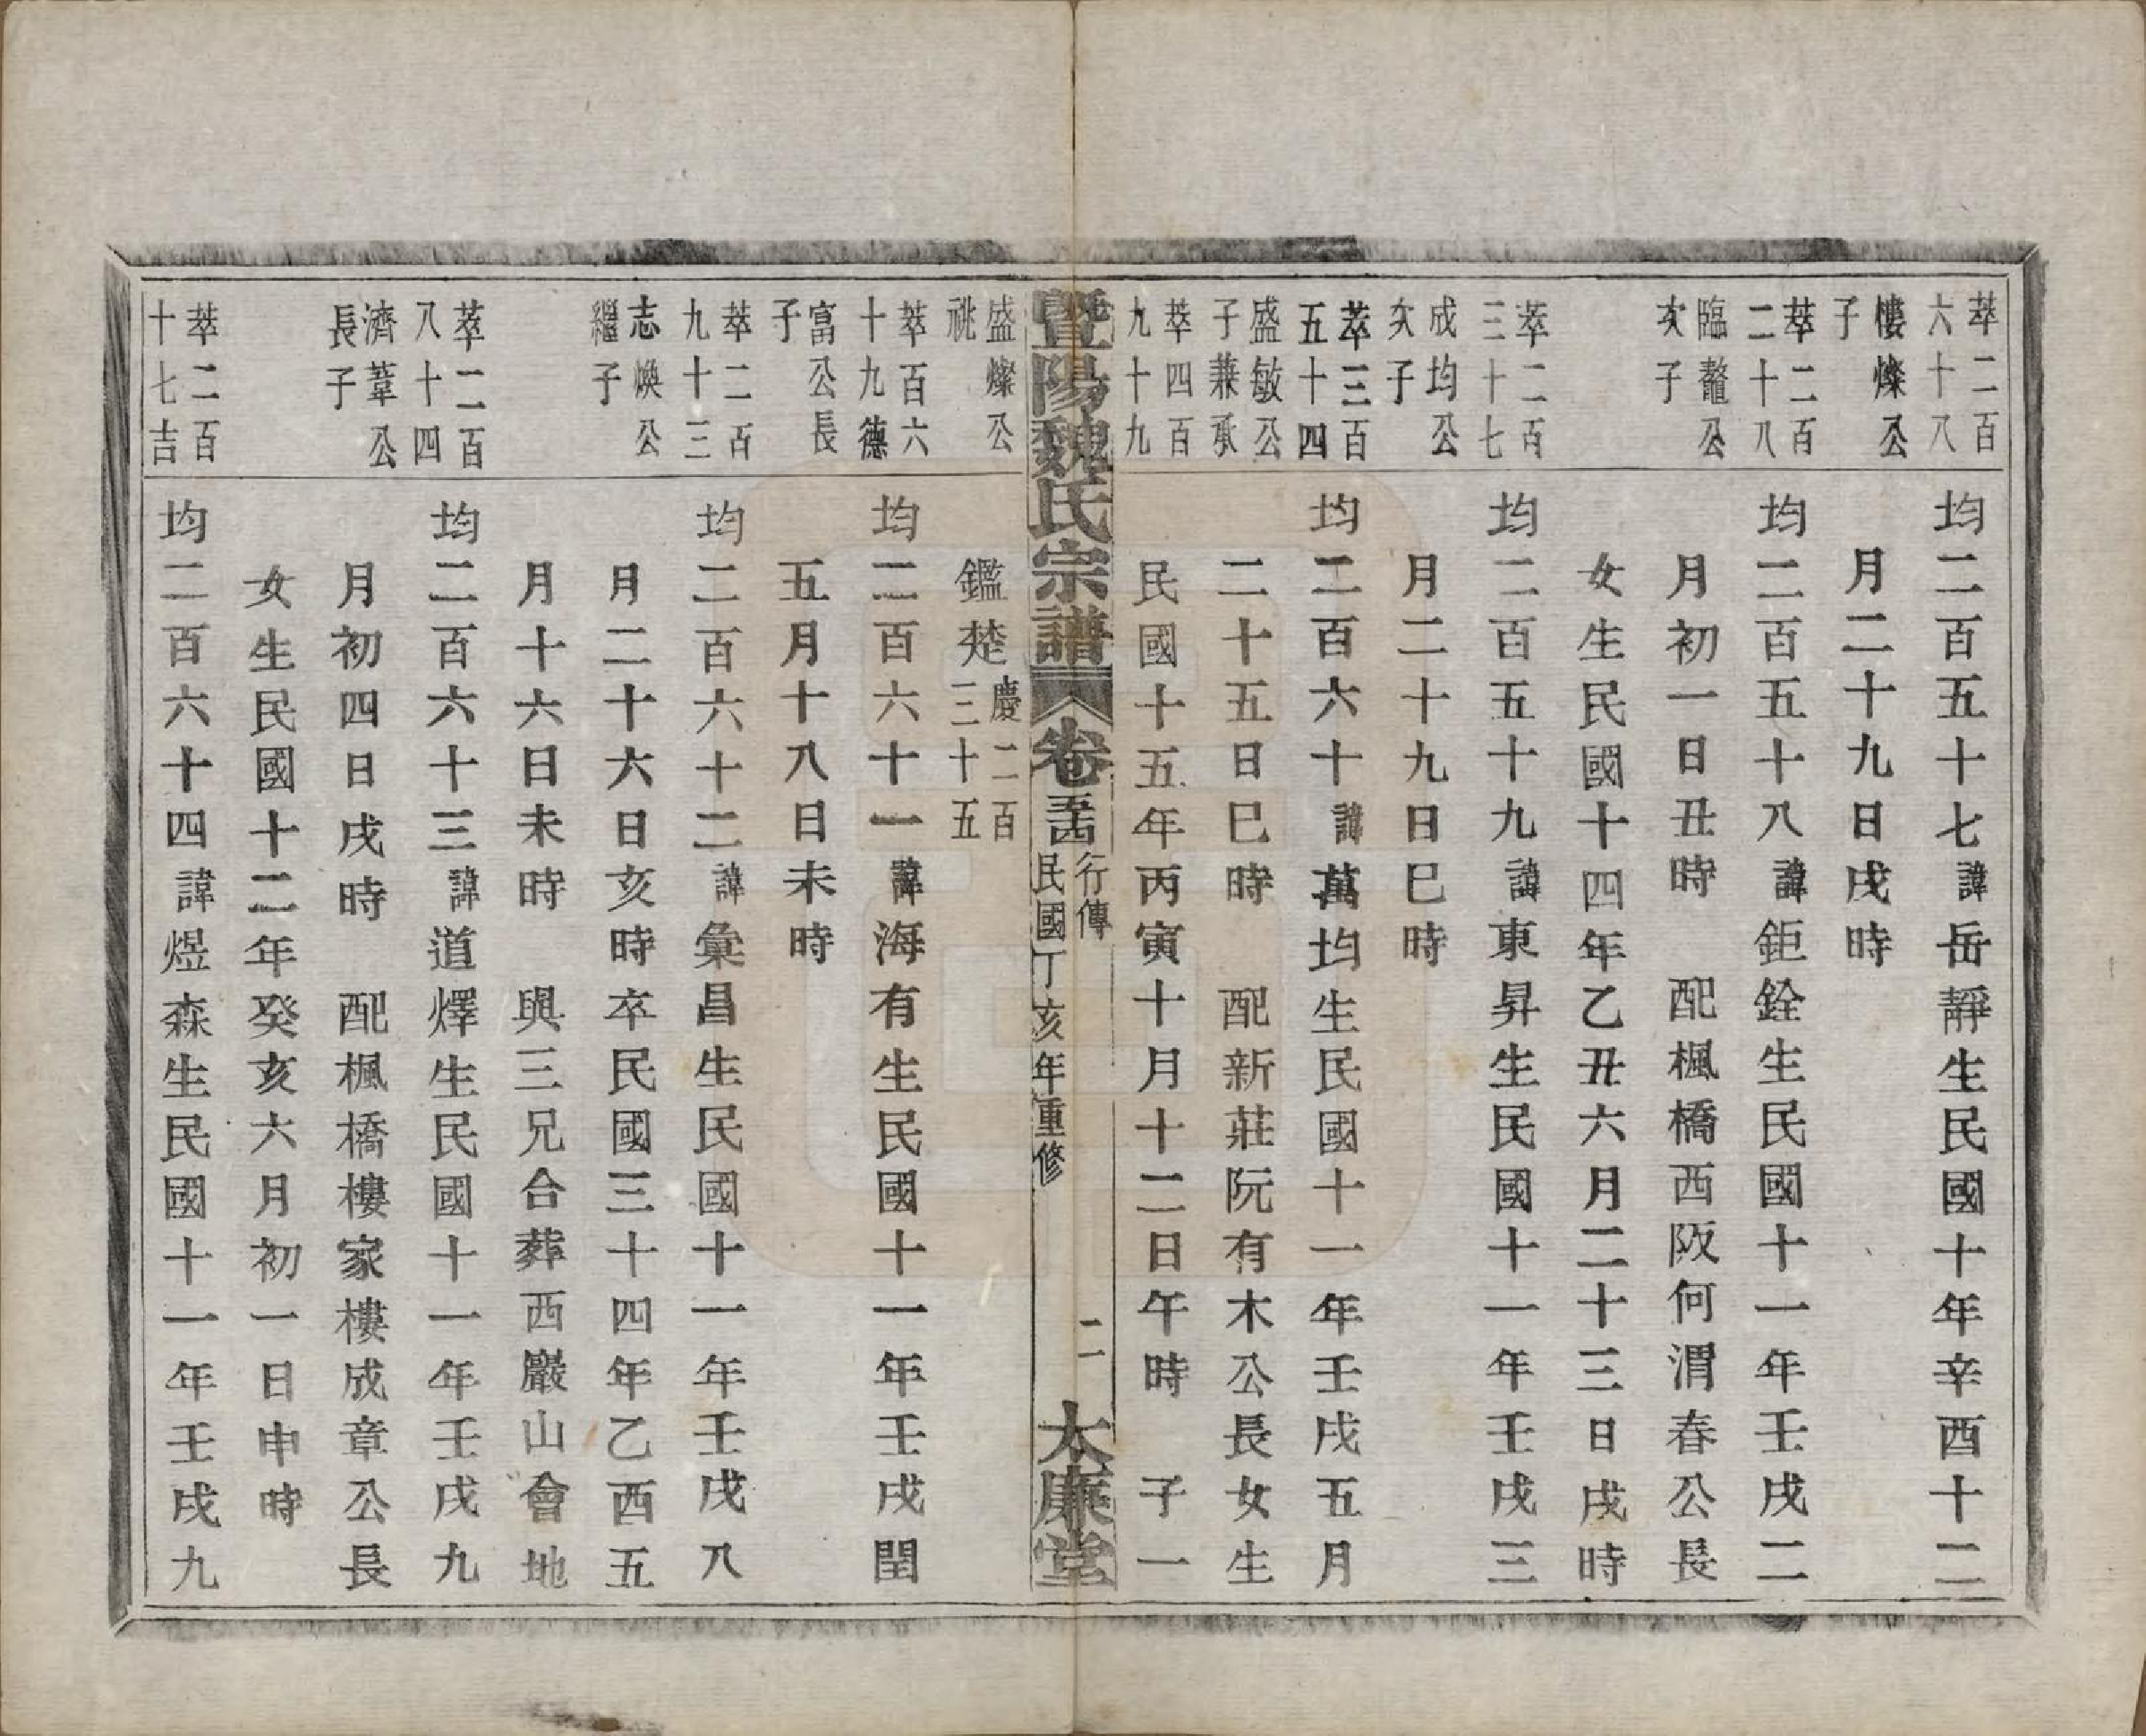 萃二百
六十八
均二百五十七諱岳靜生民國十年辛酉十二
樓燦公
子
月二十九日戌時
萃二百
二十八
均二百五十八諱鉅銓生民國十一年壬戌二
臨鼇公
次子
月初一日丑時 配楓橋西阪何渭春公長
女生民國十四年乙丑六月二十三日戌時
萃二百
三十七
均二百五十九諱東昇生民國十一年壬戌三
成均公
次子
月二十九日巳時
萃三百
五十四
均二百六十諱萬均生民國十一年壬戌五月
盛敏公
子兼承
二十五日巳時 配新莊阮有木公長女生
萃四百
九十九
民國十五年丙寅十月十二日午時 子一
暨陽魏氏宗譜 卷五四 行傳 民國丁亥年重修 二 大廉堂
盛燦公
祧
鑑楚慶二百三十五
萃百六
十九德
均二百六十一諱海有生民國十一年壬戌閏
富公長
子
五月十八日未時
萃二百
九十三
均二百六十二諱彙昌生民國十一年壬戌八
志煥公
繼子
月二十六日亥時卒民國三十四年乙酉五
月十六日未時 與三兄合葬西巖山會地
萃二百
八十四
均二百六十三諱道燡生民國十一年壬戌九
濟葦公
長子
月初四日戌時 配楓橋樓家樓成章公長
女生民國十二年癸亥六月初一日申時
萃二百
十七吉
均二百六十四諱煜森生民國十一年壬戌九